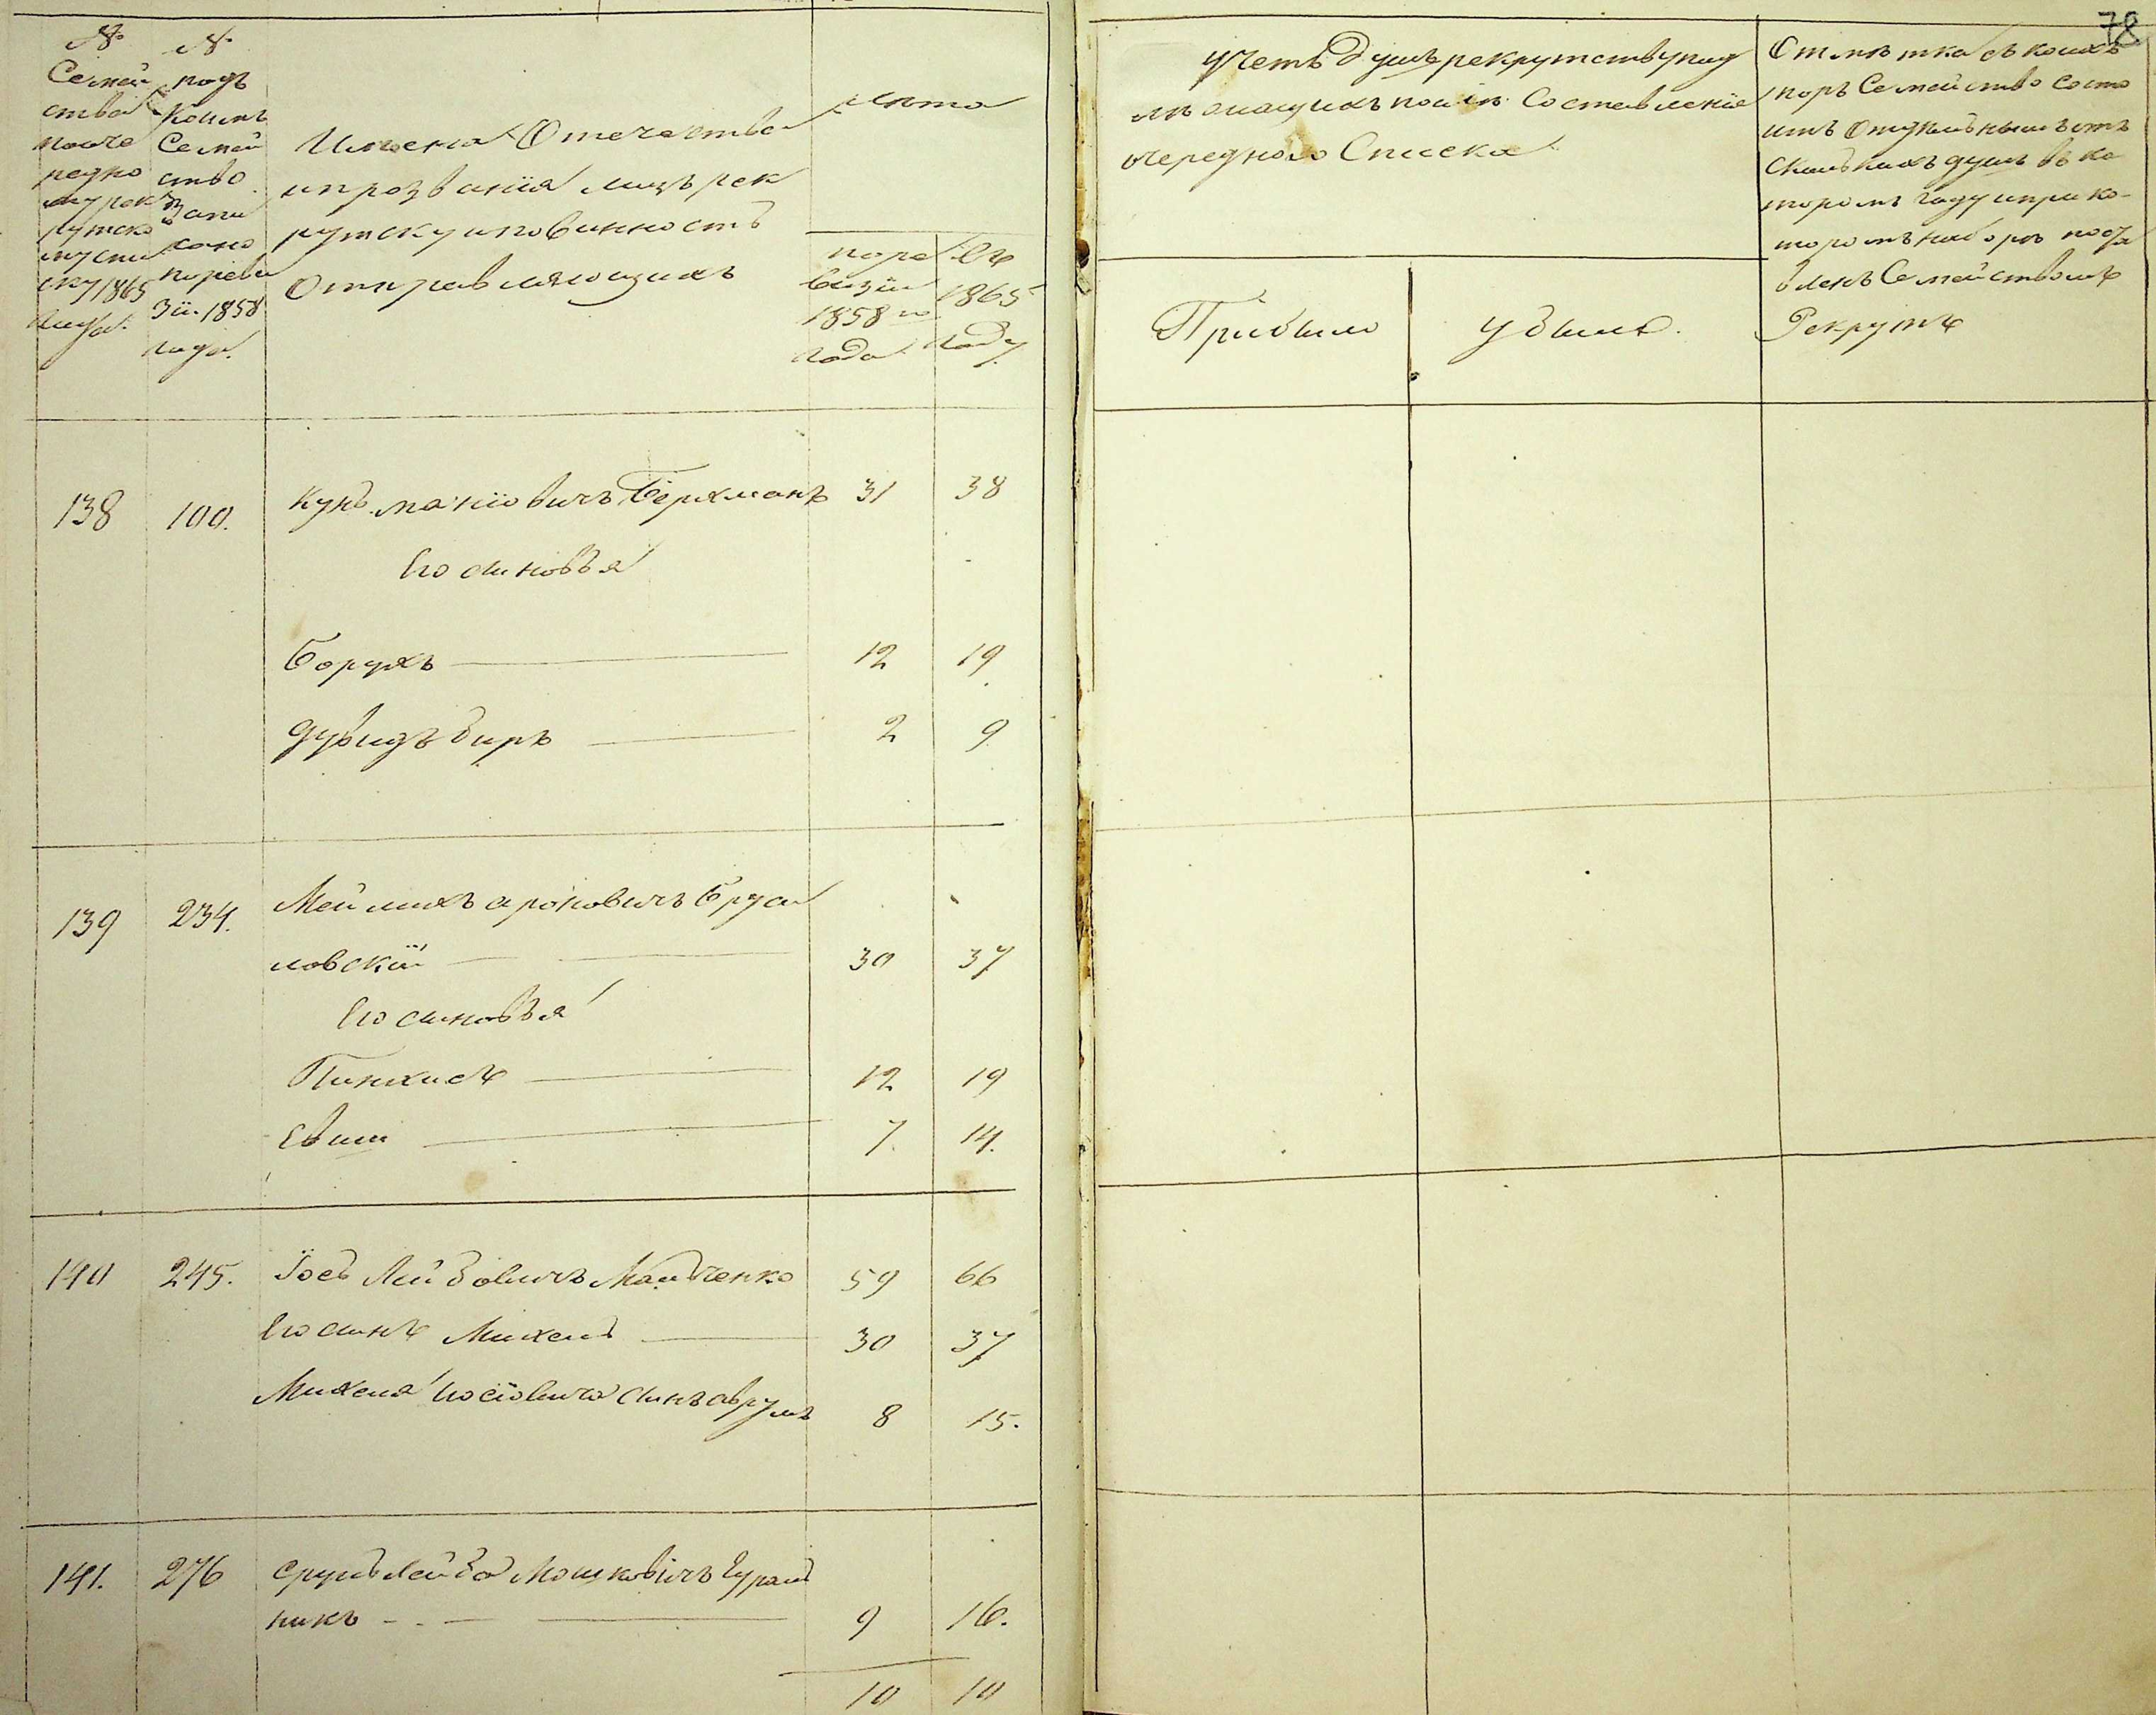 78
№
Семей
ства
по оче
редно
му рек
рутско
му спи
ску 1865
года.
№
подъ
коимъ
Семей
ство
запи
сано
по реви
зіи 1858
года.
Имена Отечества
и прозванія лицъ рек
рутску повинность
Отправляющихъ
лета
по ре
визіи
1858 го
года
Въ
1865
году
Учетъ душъ рекрутству под
лежащихъ после Составленія
очереднаго Списка
Прибыло
убыло.
Отметка съ коихъ
поръ Семейство состо
итъ Отдельнымъ отъ
сколькихъ душъ въ ко
торомъ году и при ко-
торомъ наборе поста
вленъ Семействомъ
Рекрутъ
138 100. Кунъ маніовичъ Берхманъ 31 38
Его синовъя
Борухъ 12 19.
Дувидъ биръ 2 9.
139 234. Меилихъ ароновичъ Бруси
ловскій 30 37
Его синовъя
Пинхисъ 12 19
Евши 7. 14.
140 245. Іосъ Лейбовичъ Мальченко 59 66
Его синъ Михель 30 37
Михеля Іосіовича синъ аврумъ 8 15.
141. 276 Срульлейба Мошковичъ Гураль
никъ 9 16.
10 10